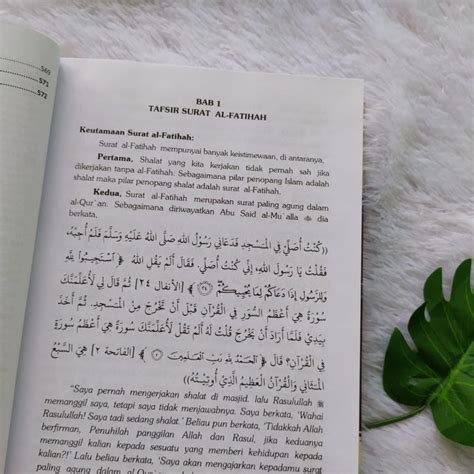 569
571
572
BAB 1
TAFSIR SURAT AL-FATIHAH
Keutamaan Surat al-Fatihah:
Surat al-Fatihah mempunyai banyak keistimewaan, di antaranya,
Pertama, Shalat yang kita kerjakan tidak pernah sah jika
dikerjakan tanpa al-Fatihah. Sebagaimana pilar penopang Islam adalah
shalat maka pilar penopang shalat adalah surat al-Fatihah.
Kedua, Surat al-Fatihah merupakan surat paling agung dalam
al-Qur`an. Sebagaimana diriwayatkan Abu Said al-Mu`alla ﷺ dia
berkata,
((كُنْتُ أُصَلِّي فِي الْمَسْجِدِ فَدَعَانِي رَسُولُ اللهِ صَلَّى اللهُ عَلَيْهِ وَسَلَّمَ فَلَمْ أُجِبْهُ،
فَقُلْتُ يَا رَسُولَ اللهِ، إِنِّي كُنْتُ أُصَلِّي. فَقَالَ أَلَمْ يَقُلِ اللهُ ﴿ اسْتَجِيبُوا لِلَّهِ
وَلِلرَّسُولِ إِذَا دَعَاكُمْ لِمَا يُحْيِيكُمْ ﴿٢٤﴾ [الأنفال ٢٤] ثُمَّ قَالَ لِي لَأُعَلِّمَنَّكَ
سُورَةً هِيَ أَعْظَمُ السُّوَرِ فِي الْقُرْآنِ قَبْلَ أَنْ تَخْرُجَ مِنَ الْمَسْجِدِ. ثُمَّ أَخَذَ
بِيَدِي فَلَمَّا أَرَادَ أَنْ يَخْرُجَ قُلْتُ لَهُ أَلَمْ تَقُلْ لَأُعَلِّمَنَّكَ سُورَةً هِيَ أَعْظَمُ سُورَةٍ
فِي الْقُرْآنِ؟ قَالَ ﴿ الْحَمْدُ لِلَّهِ رَبِّ الْعَالَمِينَ ﴾ [الفاتحة ٢] هِيَ السَّبْعُ
الْمَثَانِي وَالْقُرْآنُ الْعَظِيمُ الَّذِي أُوتِيتُهُ))
"Saya pernah mengerjakan shalat di masjid, lalu Rasulullah
memanggil saya, tetapi saya tidak menjawabnya. Saya berkata, 'Wahai
Rasulullah! Saya tadi sedang shalat.' Beliau pun berkata, 'Tidakkah Allah
berfirman, Penuhilah panggilan Allah dan Rasul, jika keduanya
memanggil kalian kepada sesuatu yang memberi kehidupan kepada
kalian?!' Lalu beliau berkata, 'Saya akan mengajarkan kepadamu surat
paling agung dalam